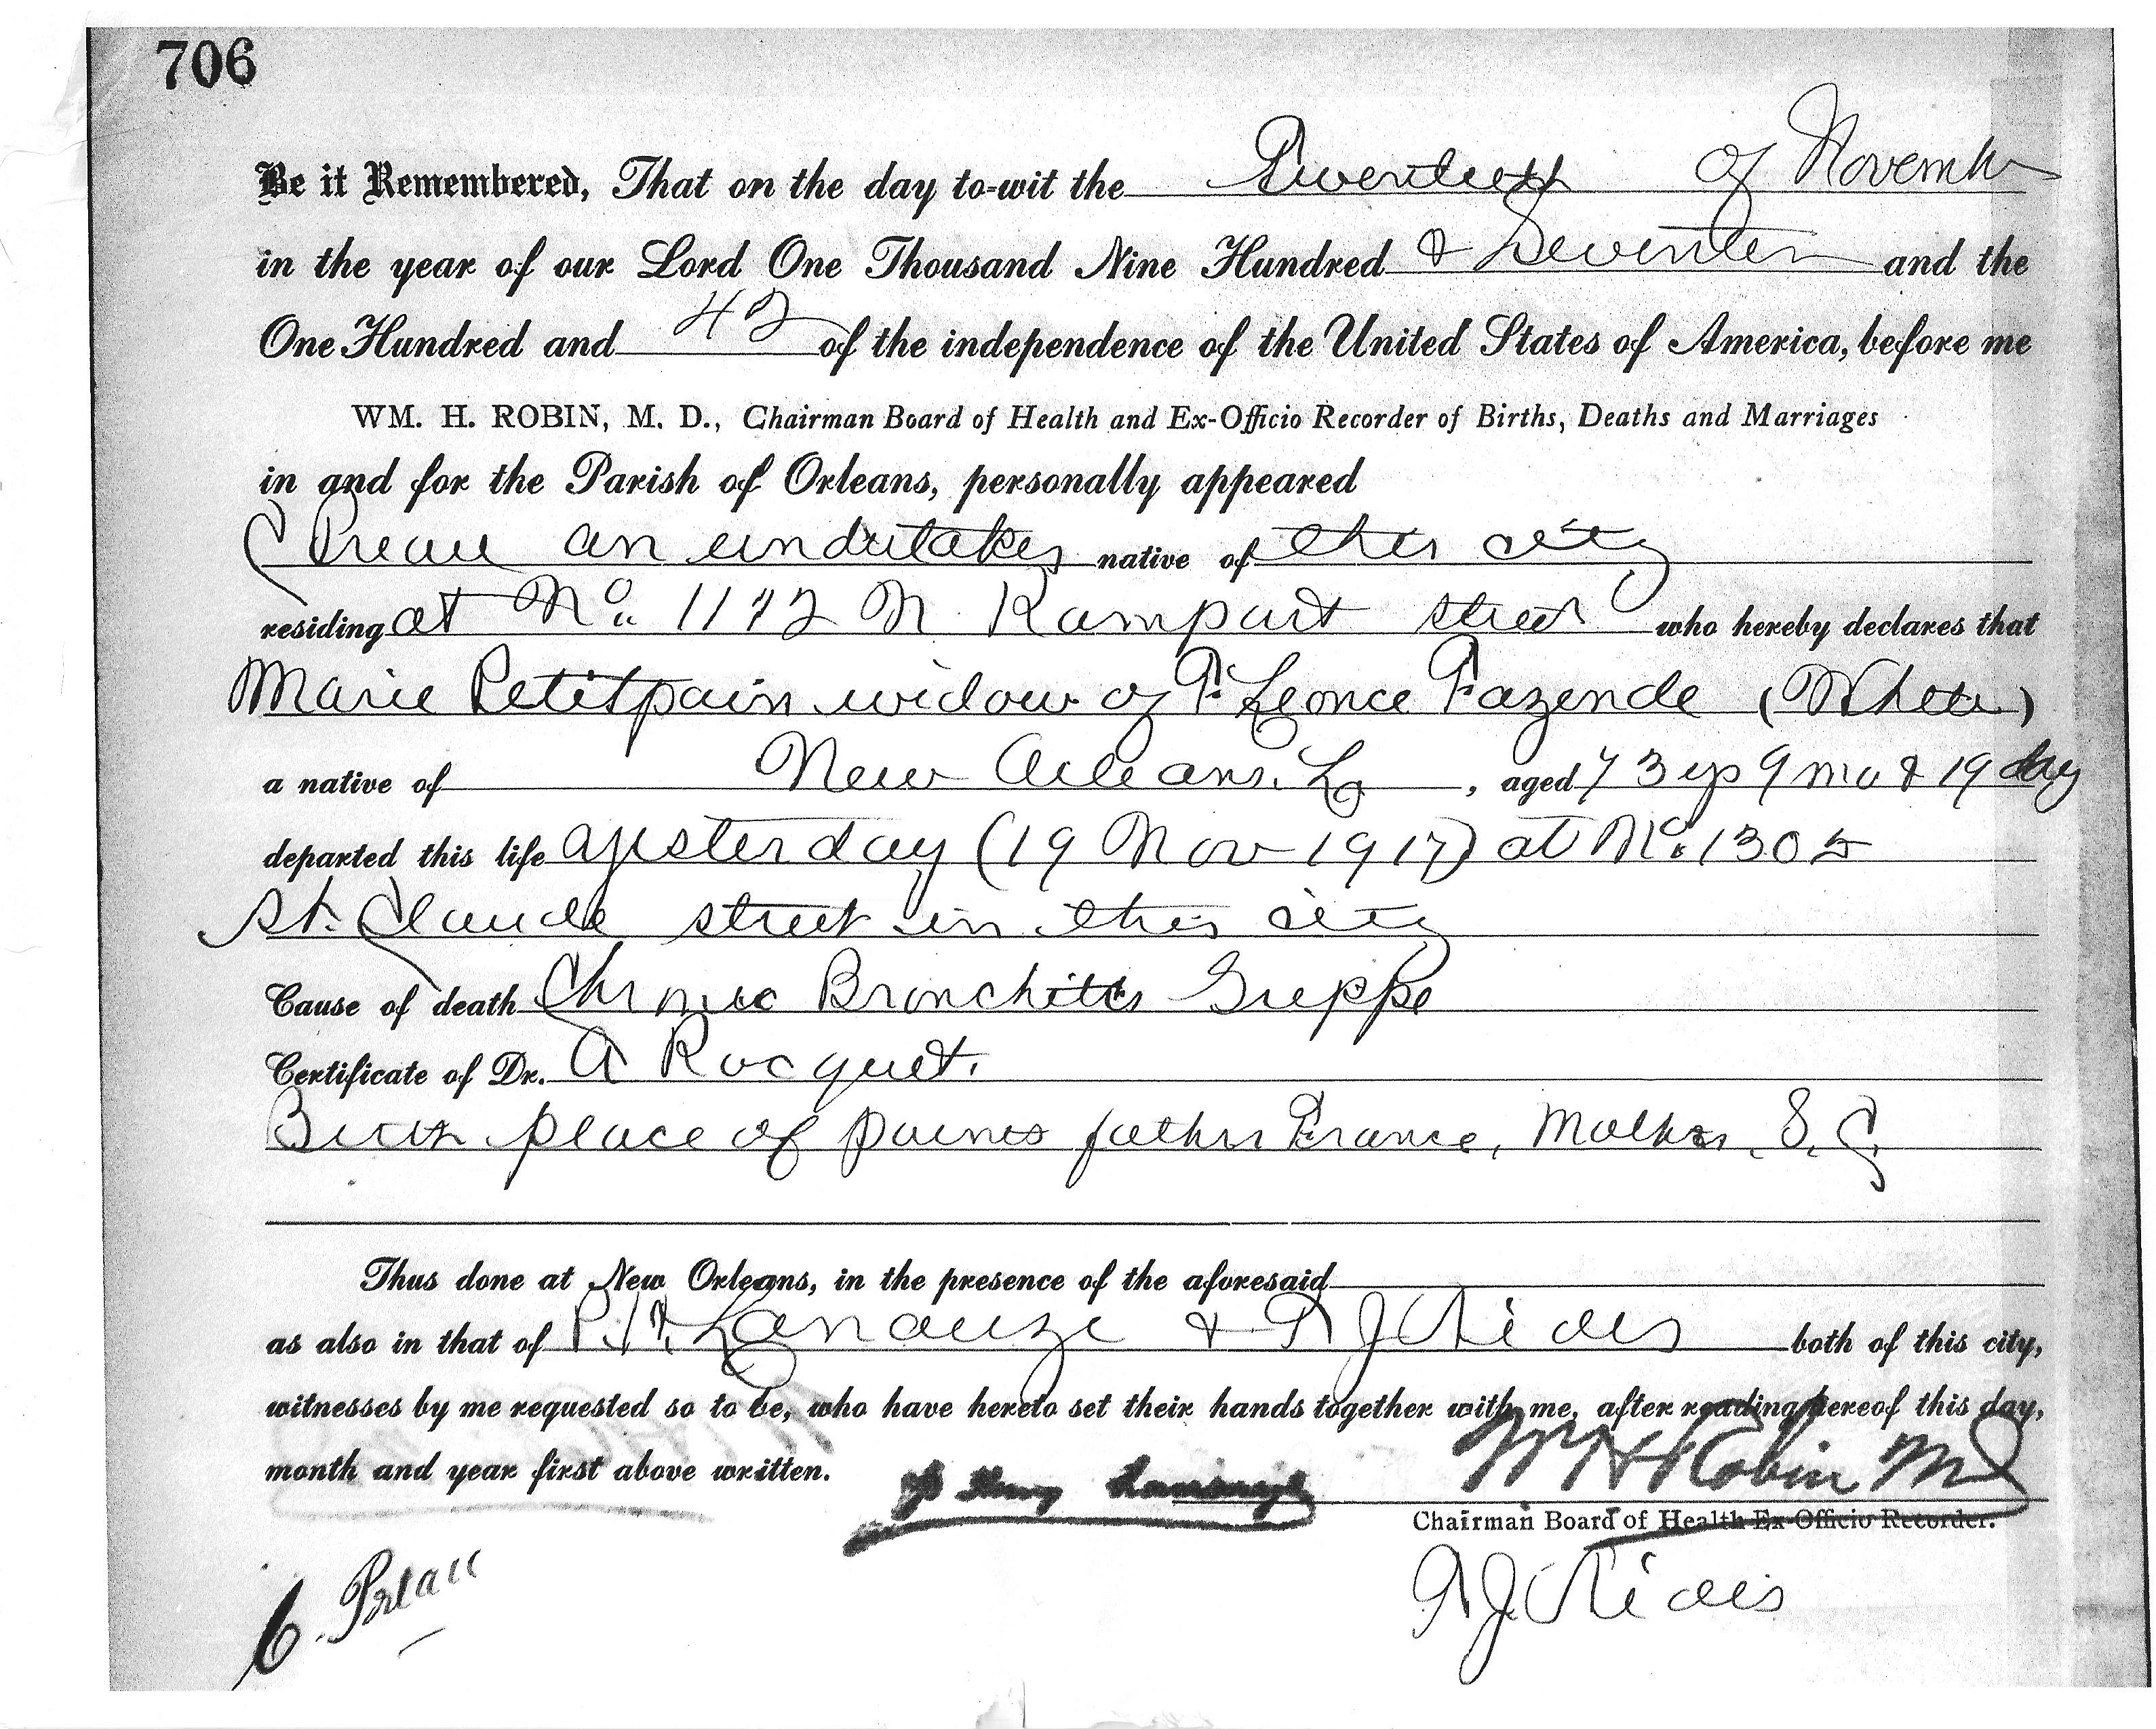 706
Be it Remembered, That on the day to-wit the Twentieth of Novembr
in the year of our Lord One Thousand Nine Hundred & Seventeen and the
One Hundred and 42 of the independence of the United States of America, before me
WM. H. ROBIN, M. D., Chairman Board of Health and Ex-Officio Recorder of Births, Deaths and Marriages
in and for the Parish of Orleans, personally appeared
C Preau an undertaker native of this city
residing at No. 1112 N Rampart street who hereby declares that
Marie Petitpain widow of F. Leonce Fazende (White)
a native of New Orleans. La, aged 73 yrs 9 mo & 19 days
departed this life yesterday (19 Nov 1917) at No. 1305
St. Claude street in this city
Cause of death Chronic Bronchitis Grippe
Certificate of Dr. A Rocquet.
Birth place of parents father France, Mother, S. C.
Thus done at New Orleans, in the presence of the aforesaid
as also in that of P. H. Lanauze & both of this city,
witnesses by me requested so to be, who have hereto set their hands together with me, after reading hereof this day,
month and year first above written.
P Henry Lanauze
W H Robin MD
Chairman Board of Health Ex-Officio Recorder.
C. Preau